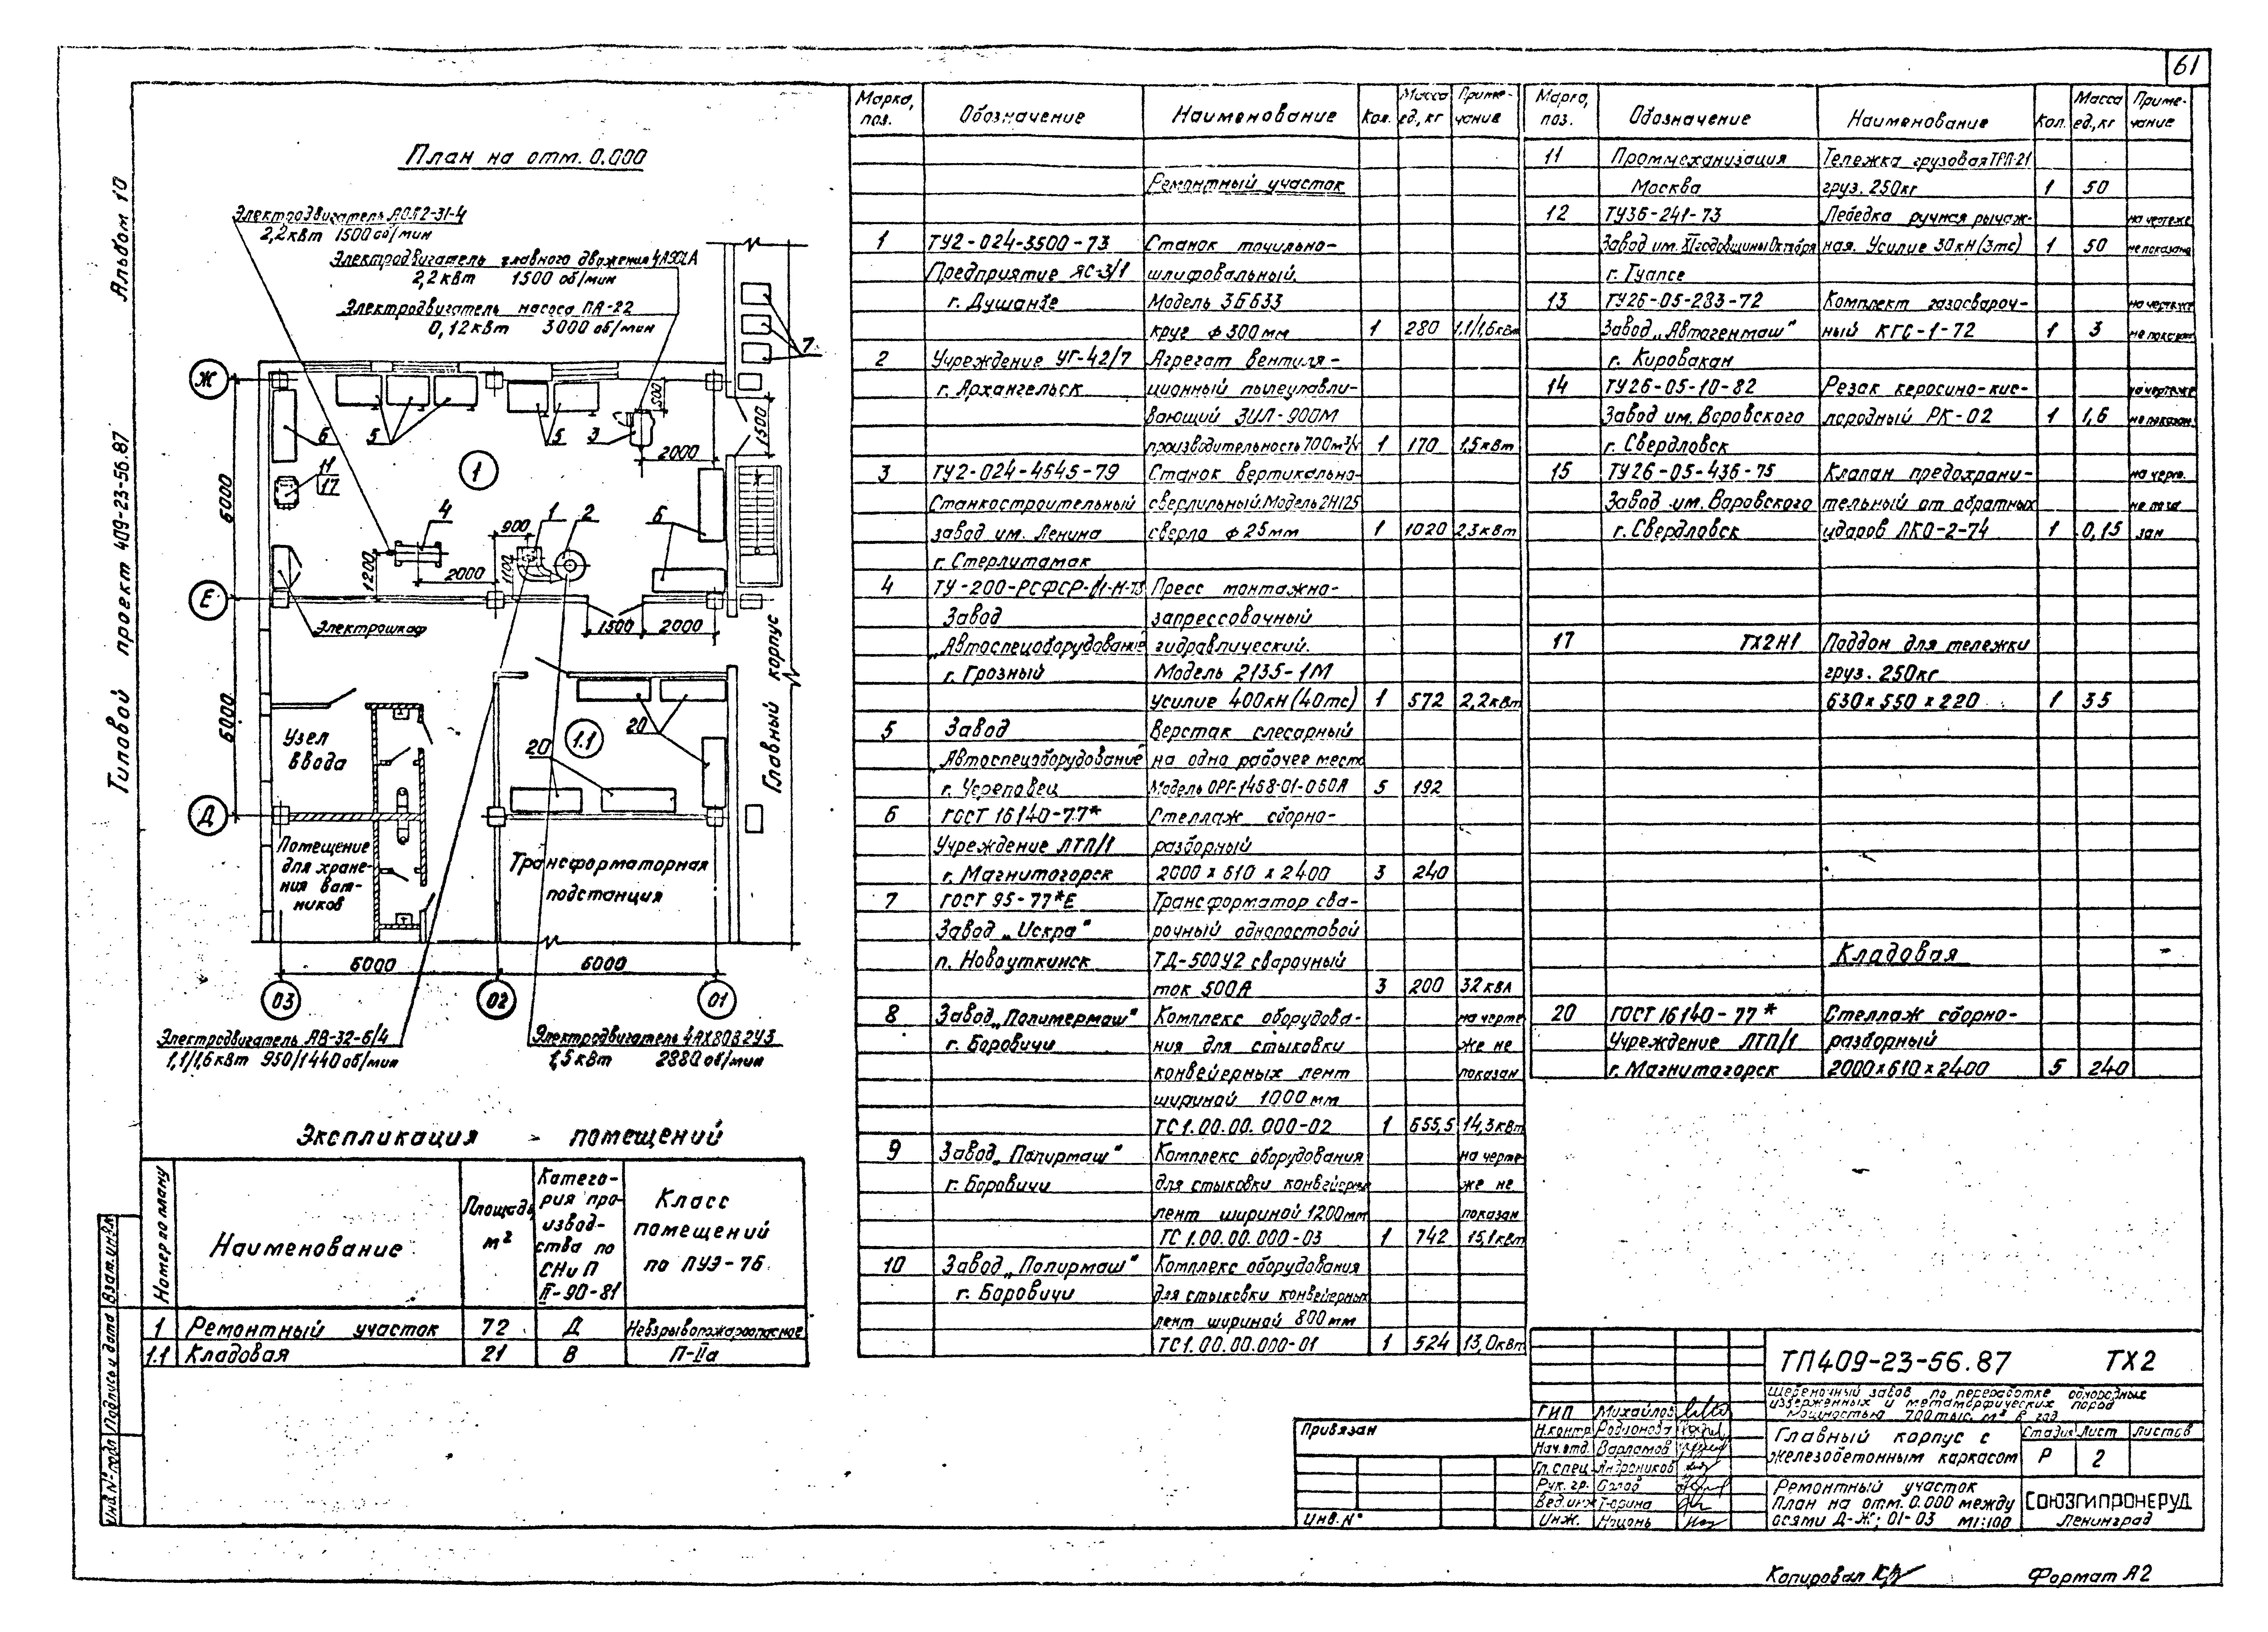 61
Альбом 10
Типовой проект 409-23-56.87
План на отм. 0.000
Электродвигатель АОЛ2-31-4
2,2кВт 1500 об/мин
Электродвигатель главного движения 4А90LА
2,2кВт 1500 об/мин
Электродвигатель насоса ПА-22
0,12кВт 3000 об/мин
7
Ж
6
5
5
3
800
1500
2000
1
11
17
6000
4
900
1
2
6
1200
2000
1100
Е
Электрошкаф
1500
2000
Главный корпус
6000
20
1.1
20
Узел
ввода
Д
Помещение
для хране-
ния ват-
ников
Трансформаторная
подстанция
6000
6000
03
02
01
Электродвигатель АВ-32-6/4
1,1/1,6кВт 950/1440 об/мин
Электродвигатель 4АХ80В2У3
1,5кВт 2880 об/мин
Экспликация помещений
Номер по плану
Наименование
Площадь м²
Катего-
рия про-
извод-
ства по
СНиП
II-90-81
Класс
помещений
по ПУЭ-76
1 Ремонтный участок 72 Д Невзрывопожароопасное
1.1 Кладовая 21 В П-IIа
Марка, поз. Обозначение Наименование Кол. Масса ед, кг Приме-чание
Ремонтный участок
1 ТУ2-024-3500-73 Станок точильно-
Предприятие ЯС-3/1 шлифовальный.
г. Душанбе Модель 3Б633
круг ф 300мм 1 280 1,1/1,6кВт
2 Учреждение УГ-42/7 Агрегат вентиля-
г. Архангельск ционный пылеулавли-
вающий ЗИЛ-900М
производительность 700м³/ч 1 170 1,5кВт
3 ТУ2-024-4645-79 Станок вертикально-
Станкостроительный сверлильный. Модель 2Н125
завод им. Ленина сверло ф 25мм 1 1020 2,3кВт
г. Стерлитамак
4 ТУ-200-РСФСР-1/1-Н-73 Пресс монтажно-
Завод запрессовочный
„Автоспецоборудование" гидравлический.
г. Грозный Модель 2135-1М
Усилие 400кН (40тс) 1 572 2,2кВт
5 Завод Верстак слесарный
„Автоспецоборудование" на одно рабочее место
г. Череповец Модель ОРГ-1468-01-060А 5 192
6 ГОСТ 16140-77* Стеллаж сборно-
Учреждение ЛТП/1 разборный
г. Магнитогорск 2000 х 610 х 2400 3 240
7 ГОСТ 95-77*Е Трансформатор сва-
Завод „Искра" рочный однопостовой
п. Новоуткинск ТД-500У2 сварочный
ток 500А 3 200 32 кВА
8 Завод „Полимермаш" Комплекс оборудова- на черте
г. Боровичи ния для стыковки же не
конвейерных лент показан
шириной 1000мм
ТС1.00.00.000-02 1 655,5 14,3кВт
9 Завод „Полирмаш" Комплекс оборудования на черте
г. Боровичи для стыковки конвейерных же не
лент шириной 1200мм показан
ТС1.00.00.000-03 1 742 15,1кВт
10 Завод „Полирмаш" Комплекс оборудования
г. Боровичи для стыковки конвейерных
лент шириной 800мм
ТС1.00.00.000-01 1 524 13,0кВт
Марка, поз. Обозначение Наименование Кол. Масса ед, кг Приме-чание
11 Проммеханизация Тележка грузовая ТРП-21
Москва груз. 250кг 1 50
12 ТУ36-241-73 Лебедка ручная рычаж- на чертеже
Завод им. XI годовщины Октября ная. Усилие 30кН (3тс) 1 50 не показана
г. Туапсе
13 ТУ26-05-283-72 Комплект газосвароч- на чертеже
Завод „Автогенмаш" ный КГС-1-72 1 3 не показан
г. Кировакан
14 ТУ26-05-10-82 Резак керосино-кис- на чертеже
Завод им. Воровского лородный РК-02 1 1,6 не показан
г. Свердловск
15 ТУ26-05-436-75 Клапан предохрани- на черт.
Завод им. Воровского тельный от обратных не пока
г. Свердловск ударов ЛКО-2-74 1 0,15 зан
17 ТХ2Н1 Поддон для тележки
груз. 250кг
630 х 550 х 220 1 35
Кладовая
20 ГОСТ 16140-77* Стеллаж сборно-
Учреждение ЛТП/1 разборный
г. Магнитогорск 2000х610х2400 5 240
Взам. инв. №
Подпись и дата
Инв. № подл
Привязан
Инв. №
ТП409-23-56.87 ТХ2
Щебеночный завод по переработке однородных
изверженных и метаморфических пород
мощностью 700 тыс. м³ в год
ГИП Михайлов
Н.контр. Родионова
Нач. отд. Варламов
Гл. спец. Андроников
Рук. гр.
Вед. инж
Инж.
Главный корпус с
железобетонным каркасом
Стадия Лист Листов
Р 2
Ремонтный участок
План на отм. 0.000 между
осями Д-Ж; 01-03 М1:100
СОЮЗГИПРОНЕРУД
Ленинград
Копировал
Формат А2